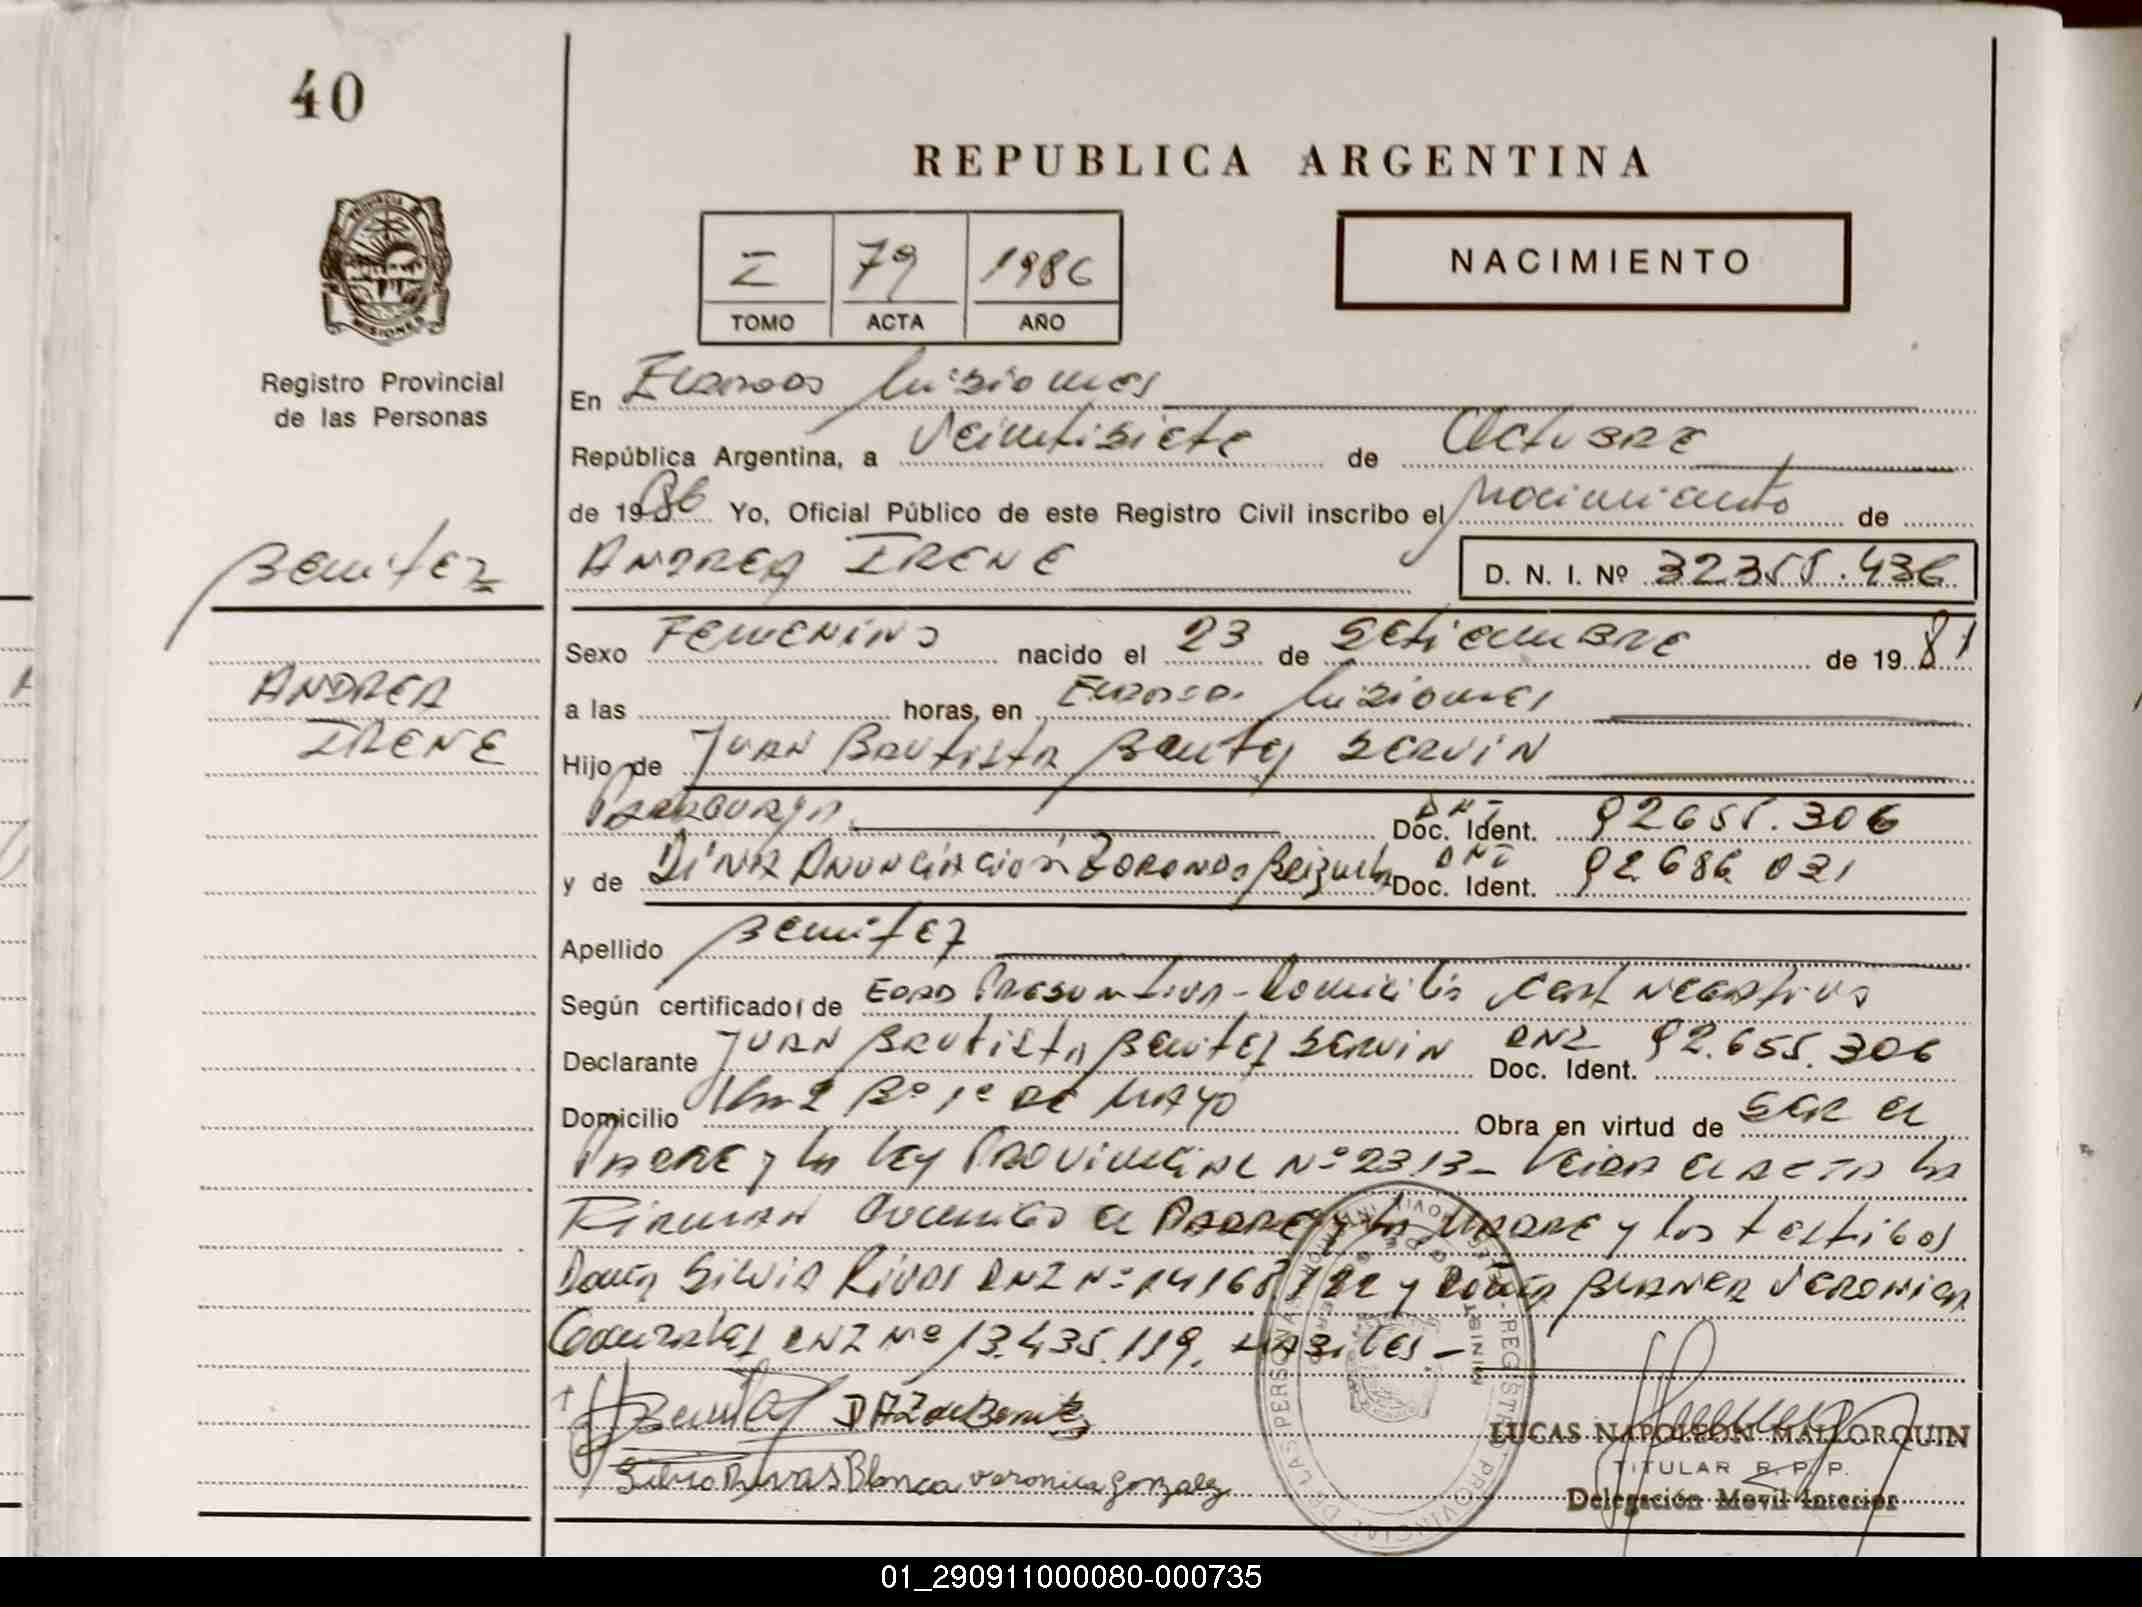 40
REPUBLICA ARGENTINA
PROVINCIA DE
MISIONES
Registro Provincial
de las Personas
NACIMIENTO
I 79 1986
TOMO ACTA AÑO
En Eldorado Misiones
República Argentina, a Veintisiete de Octubre
de 1986 Yo, Oficial Público de este Registro Civil inscribo el Nacimiento de
Benitez
ANDREA IRENE D. N. I. Nº 32355.436
Sexo Femenino nacido el 23 de Setiembre de 1981
ANDREA
IRENE
a las horas, en Eldorado Misiones
Hijo de Juan Bautista Benitez Servin
Doc. Ident. DNI 92655.306
y de Dina Anunciación Doc. Ident. DNI 92.686 021
Apellido Benitez
Según certificado de Edad Presuntiva - Domicilio Cert Negativo
Declarante Juan Bautista Benitez Servin Doc. Ident. DNI 92.655.306
Domicilio Km 2 Bº 1º de Mayo Obra en virtud de ser el
Padre y la Ley Provincial Nº 2313 - Leida el acta la
Firman conmigo el Padre y la Madre y los testigos
Doña Silvia Rivas DNI Nº 14168122 y Doña Blanca Veronica
Gonzalez DNI Nº 13.435.119. Habiles. -
Benitez DAZ de Benitez
Silvia Rivas Blanca Veronica Gonzalez
LUCAS NAPOLEON MALLORQUIN
TITULAR R. P. P.
Delegación Movil Interior
REGISTRO PROVINCIAL DE LAS PERSONAS
01_290911000080-000735